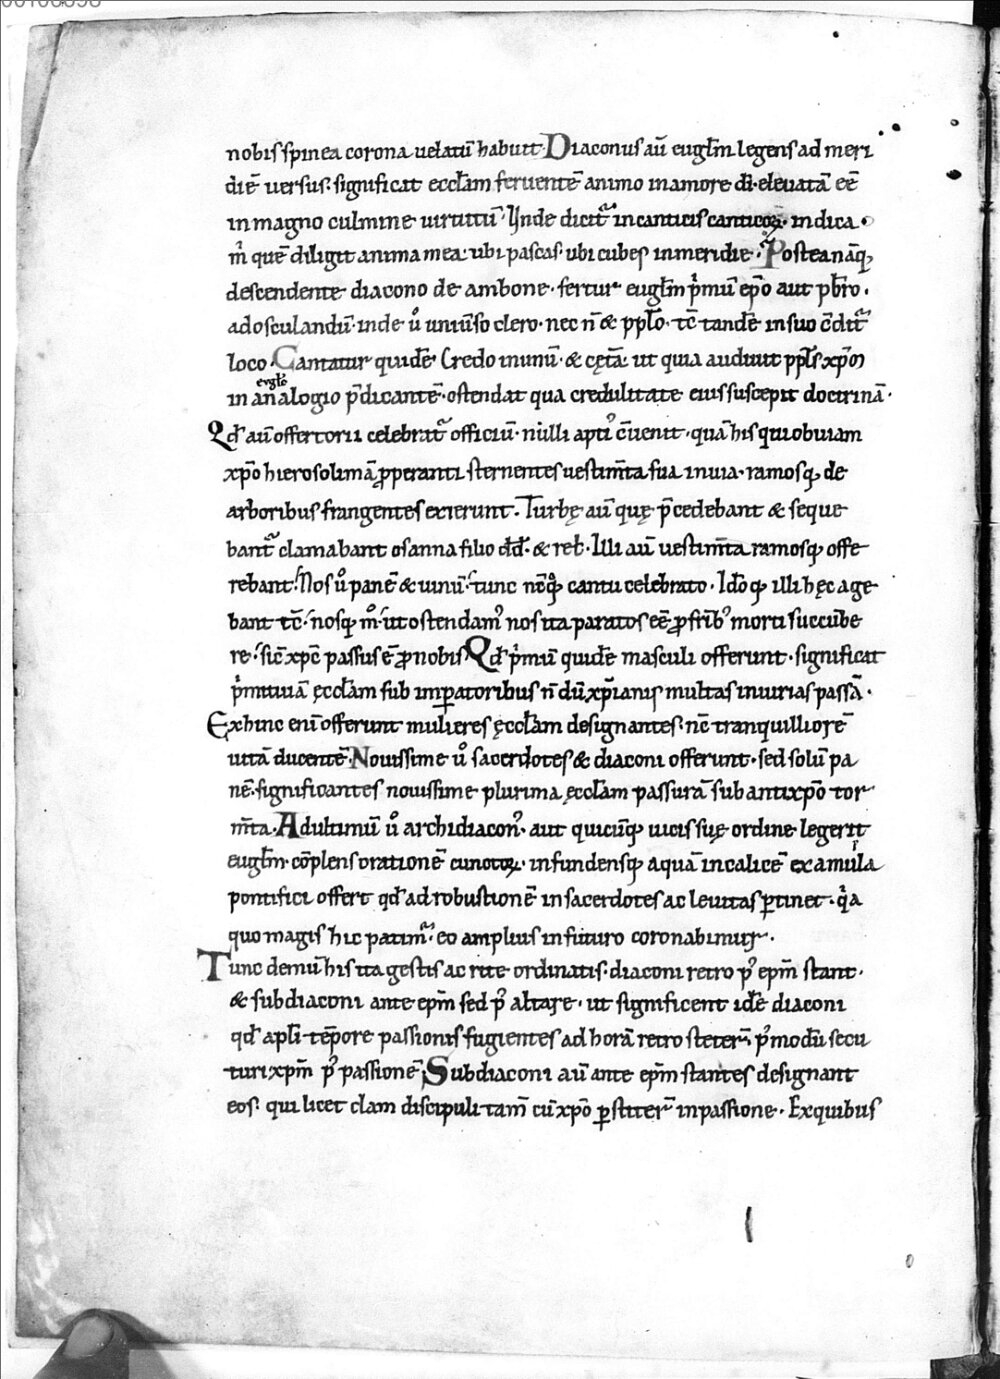 nobis spinea corona uelatū habuit. Diaconus aū eugłm legens ad meri
diē uersus. significat eccłam feruentē animo in amore dī. eleuatā eē
in magno culmine uirtutū. Unde dicit᷑ in canticis canticoꝝ. indica.
m̉ quē diligit anima mea. ubi pascas. ubi cubes in meridie. Postea nāq;
descendente diacono de ambone. fertur eugłm p̉mū ep̄o aut pb̄ro.
ad osculandū. inde ů uniu̓so clero. nec n̄ & ppło. tc̄ tandē in suo c̄dit᷑
loco. Cantatur quidē Credo in unū. & cęt̄a. ut quia audiuit ppłs xp̄m
euǵło
in analogio p̄dicantē. ostendat qua credulitate eius suscepit doctrinā.
Qd̄ aū offertorii celebrat᷑ officiū. nulli apti᾽ c̄uenit. quā his qui obuiam
xp̄o hierosolimā ꝓperanti sternentes uestim̄ta sua in uia. ramosq; de
arboribus frangentes exierunt. Turbę aū quę p̄cedebant & seque
bant᷑ clamabant osanna filio dd̄. & reł. Illi aū uestim̄ta ramosq; offe
rebant. Nos ů panē & uinū. tunc nēq; cantu celebrato. Idoq; illi hęc age
bant tc̄. nosq; m̊. ut ostendam᾽ nos ita paratos eē ꝓ frīb᾽ morti succūbe
re. sic̄ xpc̄ passus ē ꝓ nobis. Qd̄ p̉mū quidē masculi offerunt. significat
p̉mitiuā ęccłam sub imꝑatoribus n̄dū xp̄ianis multas iniurias passā.
Exhinc enī offerunt mulieres ęccłam designantes. nc̄ tranquilliorē
uitā ducentē. Nouissime ů sacerdotes & diaconi offerunt. sed solū pa
nē. significantes nouissime plurima ęccłam passurā sub antixp̄o tor
m̄ta. Ad ultimū ů archidiacon᾽. aut quicūq; uicis suę ordine legerit
eugłm. cōplens orationē cunctoꝝ. infundensq; aquā in calicē ex amula
pontifici offert. qd̄ ad robustionē in sacerdotes ac leuitas ꝑtinet. q̉a
quo magis hic patim᷑. eo amplius in futuro coronabimur.
Tunc demū his ita gestis ac rite ordinatis. diaconi retro p᾽ epm̄ stant.
& subdiaconi ante epm̄ sed p᾽ altare. ut significent idē diaconi
qd̄ apłi tēpore passionis fugientes ad horā retro steter̄. p᾽modū secu
turi xpm̄ p᾽ passionē. Subdiaconi aū ante epm̄ stantes designant
eos. qui licet clam discipuli. tam̄ cū xp̄o ꝑstiter̄ in passione. Ex quibus